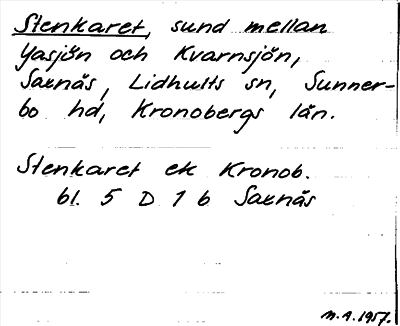 Stenkaret, sund mellan
Yasjön och Kvarnsjön,
Saxnäs, Lidhults sn, Sunner-
bo hd, Kronobergs län.
Stenkaret ek Kronob.
bl. 5 D 1 b Saxnäs
M.A. 1957.